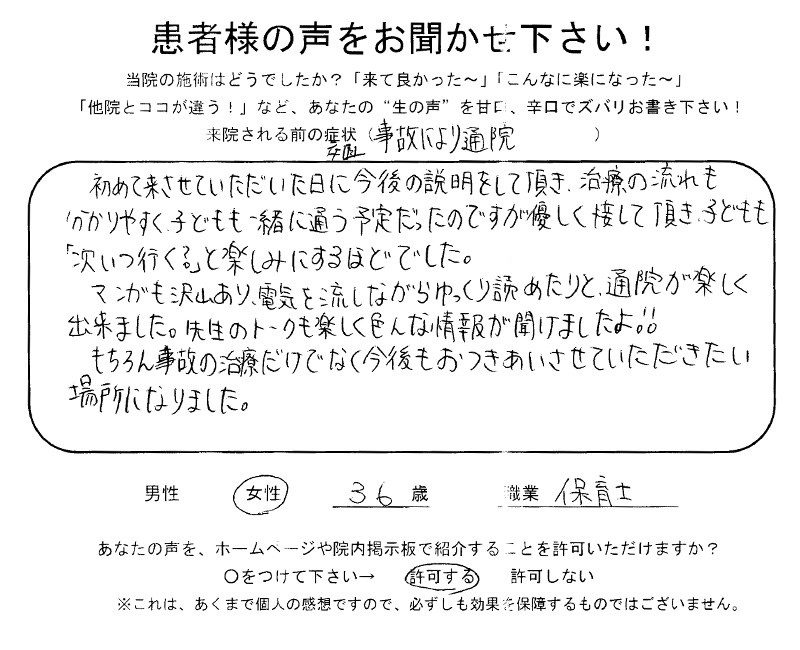 患者様の声をお聞かせ下さい！
当院の施術はどうでしたか？「来て良かった～」「こんなに楽になった～」
「他院とココが違う！」など、あなたの“生の声”を甘口、辛口でズバリお書き下さい！
来院される前の症状（事故により通院）
初めて来させていただいた日に今後の説明をして頂き、治療の流れも
分かりやすく、子どもも一緒に通う予定だったのですが優しく接して頂き、子どもも
「次いつ行くる」と楽しみにするほどでした。
マンガも沢山あり、電気を流しながらゆっくり読めたりと、通院が楽しく
出来ました。先生のトークも楽しく色んな情報が聞けましたよ!!
もちろん事故の治療だけでなく今後もおつきあいさせていただきたい
場所になりました。
男性 女性 36歳 職業 保育士
あなたの声を、ホームページや院内掲示板で紹介することを許可いただけますか？
○をつけて下さい→ 許可する 許可しない
※これは、あくまで個人の感想ですので、必ずしも効果を保障するものではございません。